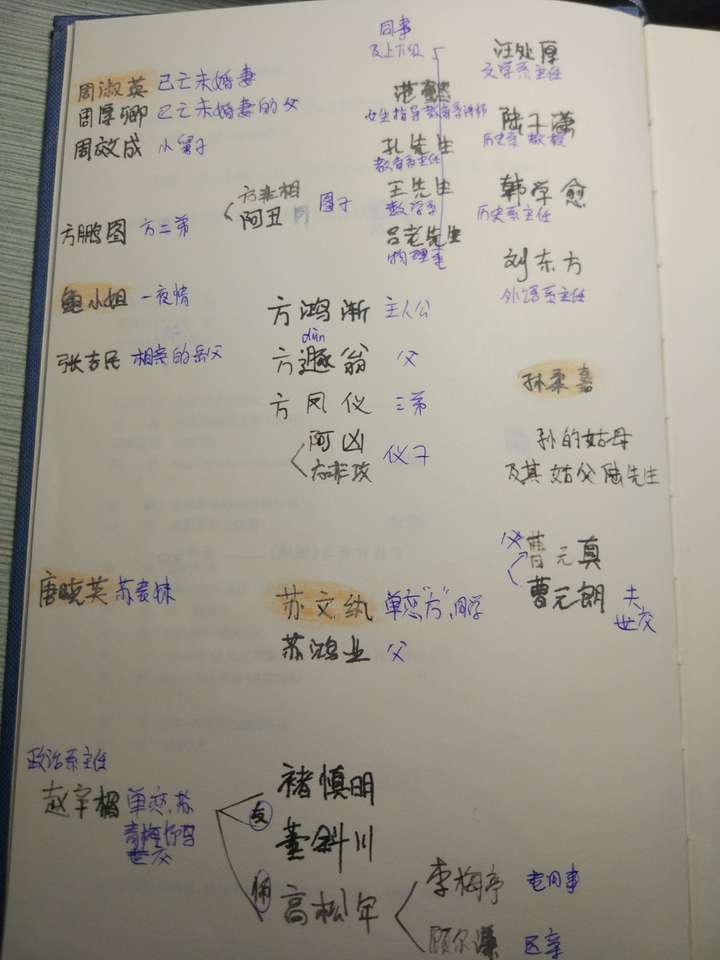 同事
及上下级
汪处厚
文学系主任
范懿
女生指导教育系讲师
陆子潇
历史系 教授
孔先生
教育系主任
王先生
数学系
吕老先生
物理
韩学愈
历史系主任
刘东方
外语系主任
周淑英 已亡未婚妻
周厚卿 已亡未婚妻的父
周效成 小舅子
方非相
阿丑 图子
方鹏图 方二弟
鲍小姐 一夜情
张吉民 相亲的岳父
方鸿渐 主人公
dùn
方遯翁 父
方凤仪 三弟
阿凶 仪子
方非攻
孙柔嘉
孙的姑母
及其姑父陆先生
父 曹元真
曹元朗 夫
世交
唐晓英 苏表妹
苏文纨 单恋"方",同学
苏鸿业 父
政治系主任
赵辛楣 单恋苏
青梅竹马
世交
友
褚慎明
董斜川
高松年
李梅亭 老同事
顾尔谦 远亲